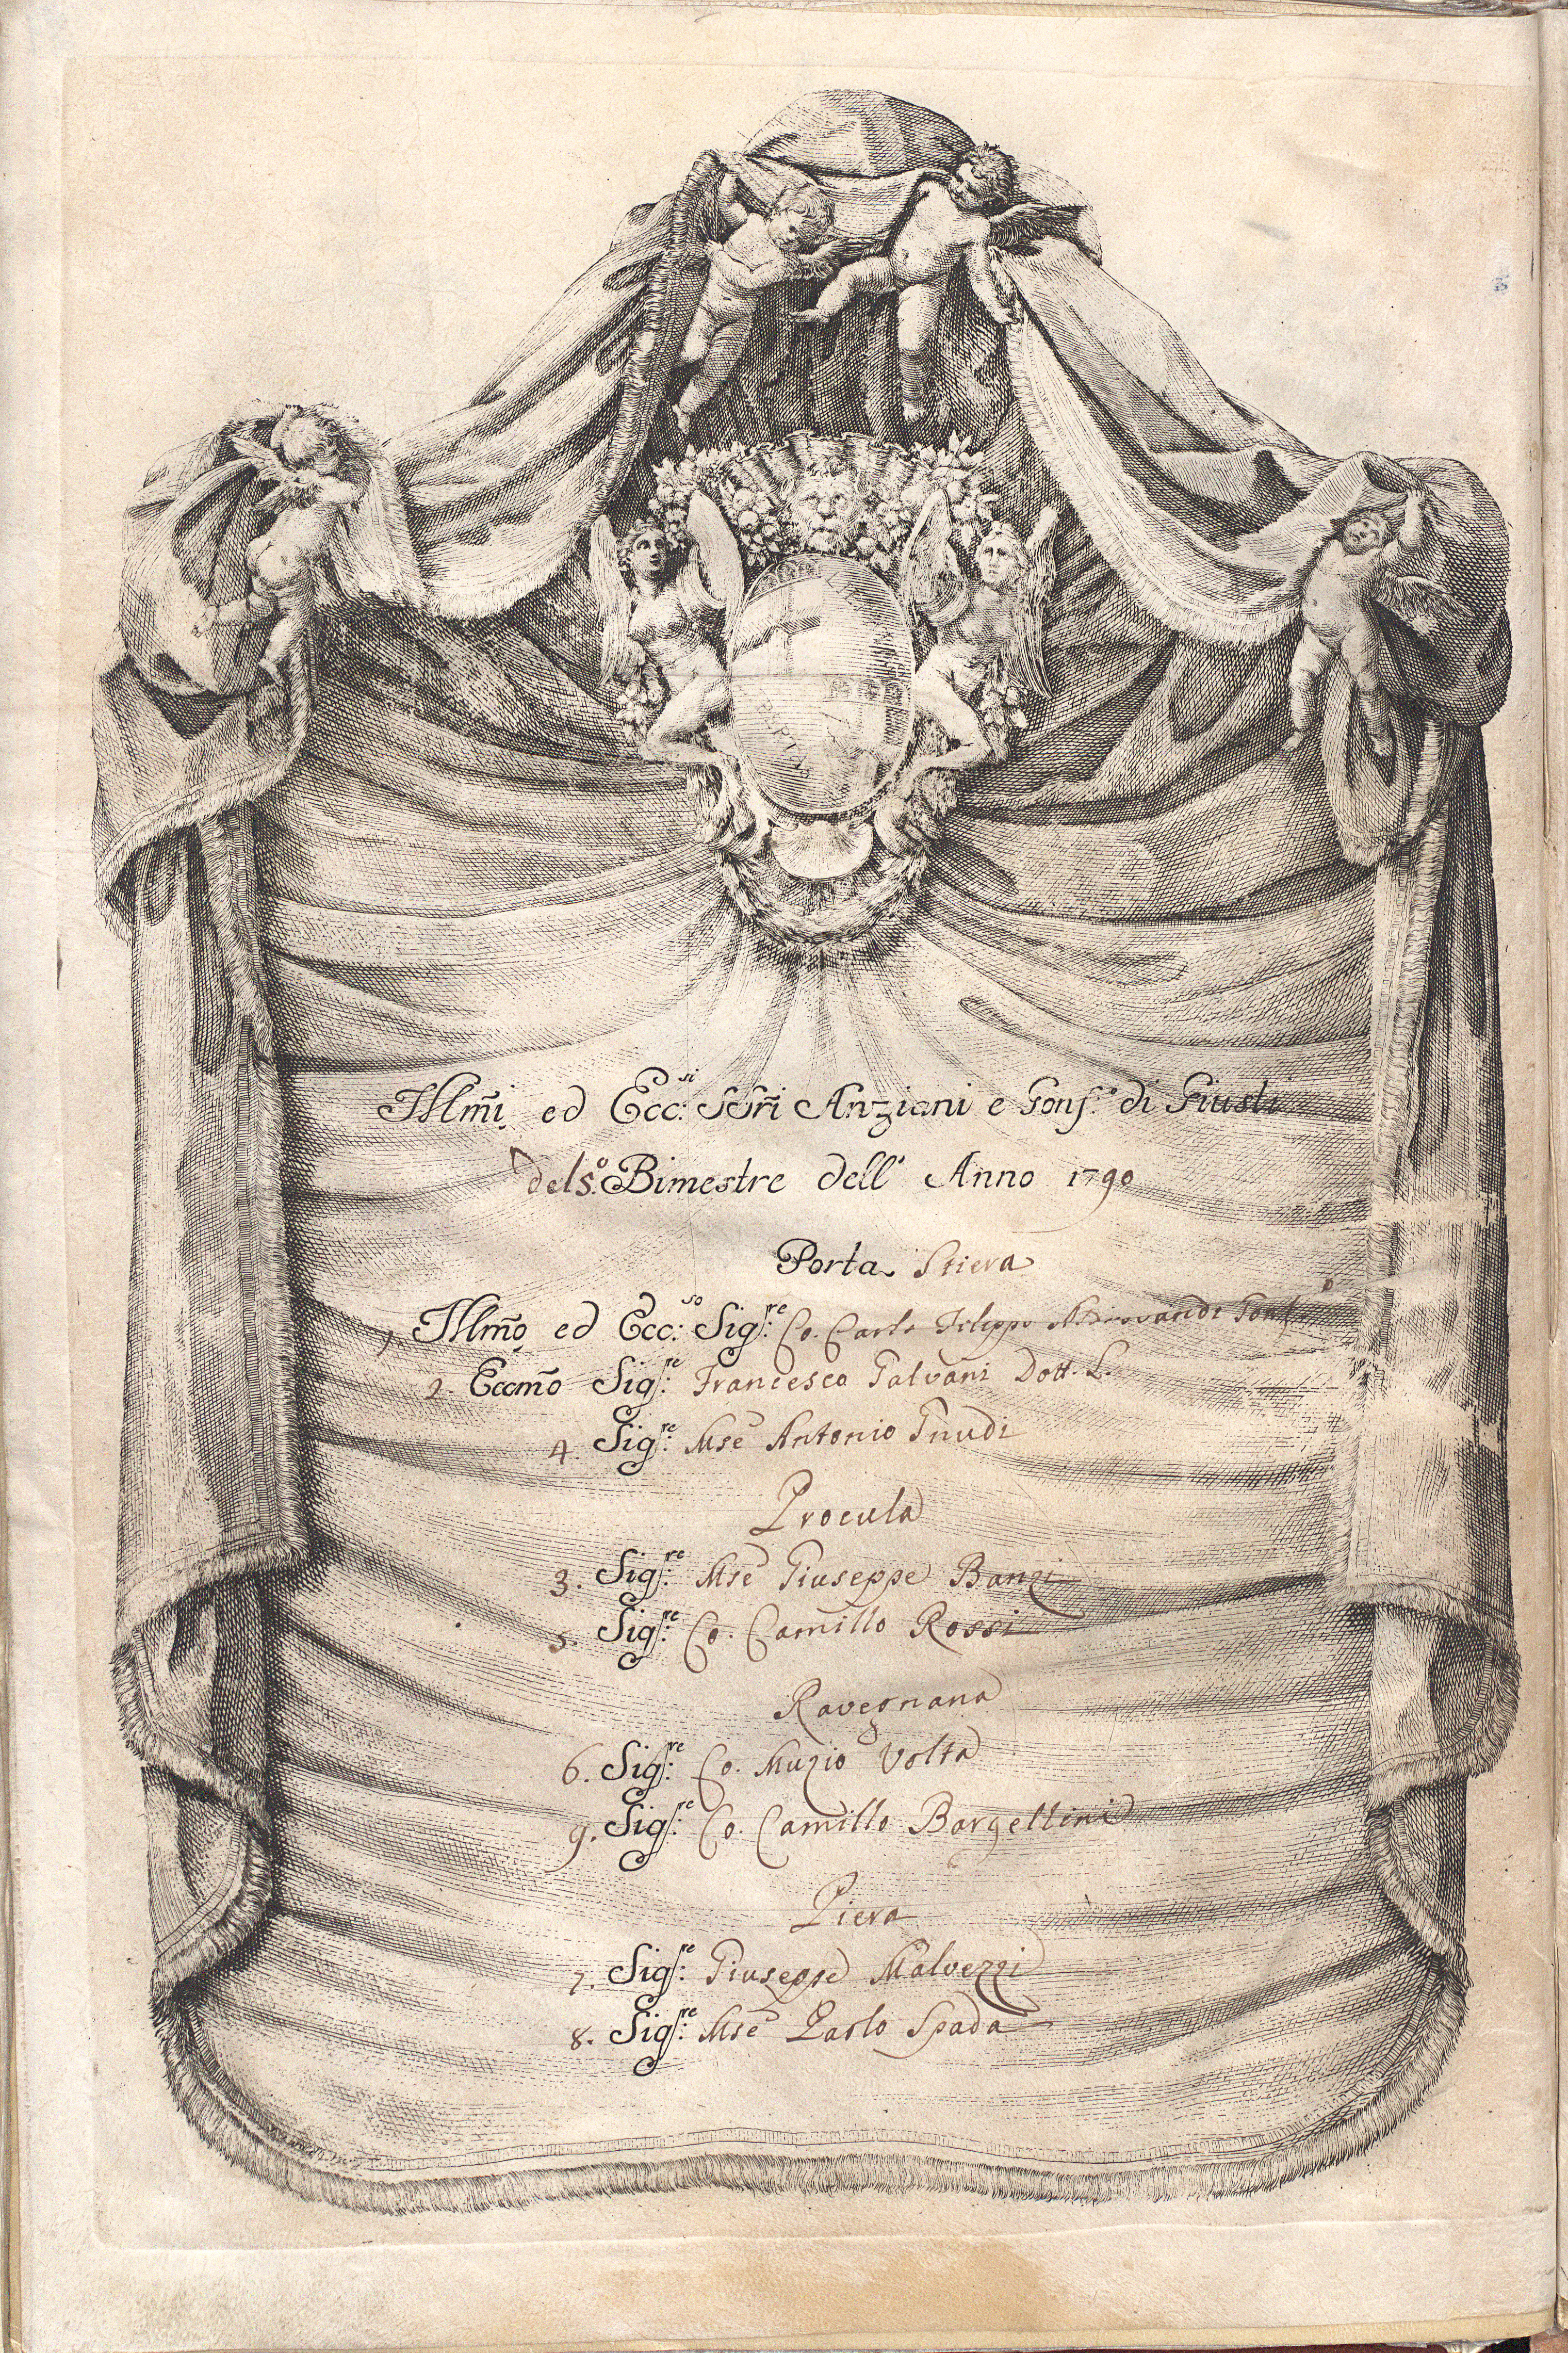 LIBERTAS
LIBERTAS
Illm̃i ed Ecc:si SSri Anziani e Gonf.e di Giusti
del 5.o Bimestre dell' Anno 1790
Porta Stiera
1. Illm̃o ed Ecc:so Sig:re Co. Carlo Filippo Aldrovandi Gonf.o
2. Eccm̃o Sig:re Francesco Galvani Dott. L.
4. Sig:re Mse Antonio Gnudi
Procula
3. Sig:re Mse Giuseppe Banzi
5. Sig:re Co. Camillo Rossi
Ravegnana
6. Sig:re Co. Muzio Volta
9. Sig:re Co. Camillo Bargellini
Piera
7. Sig:re Giuseppe Malvezzi
8. Sig:re Mse Paolo Spada